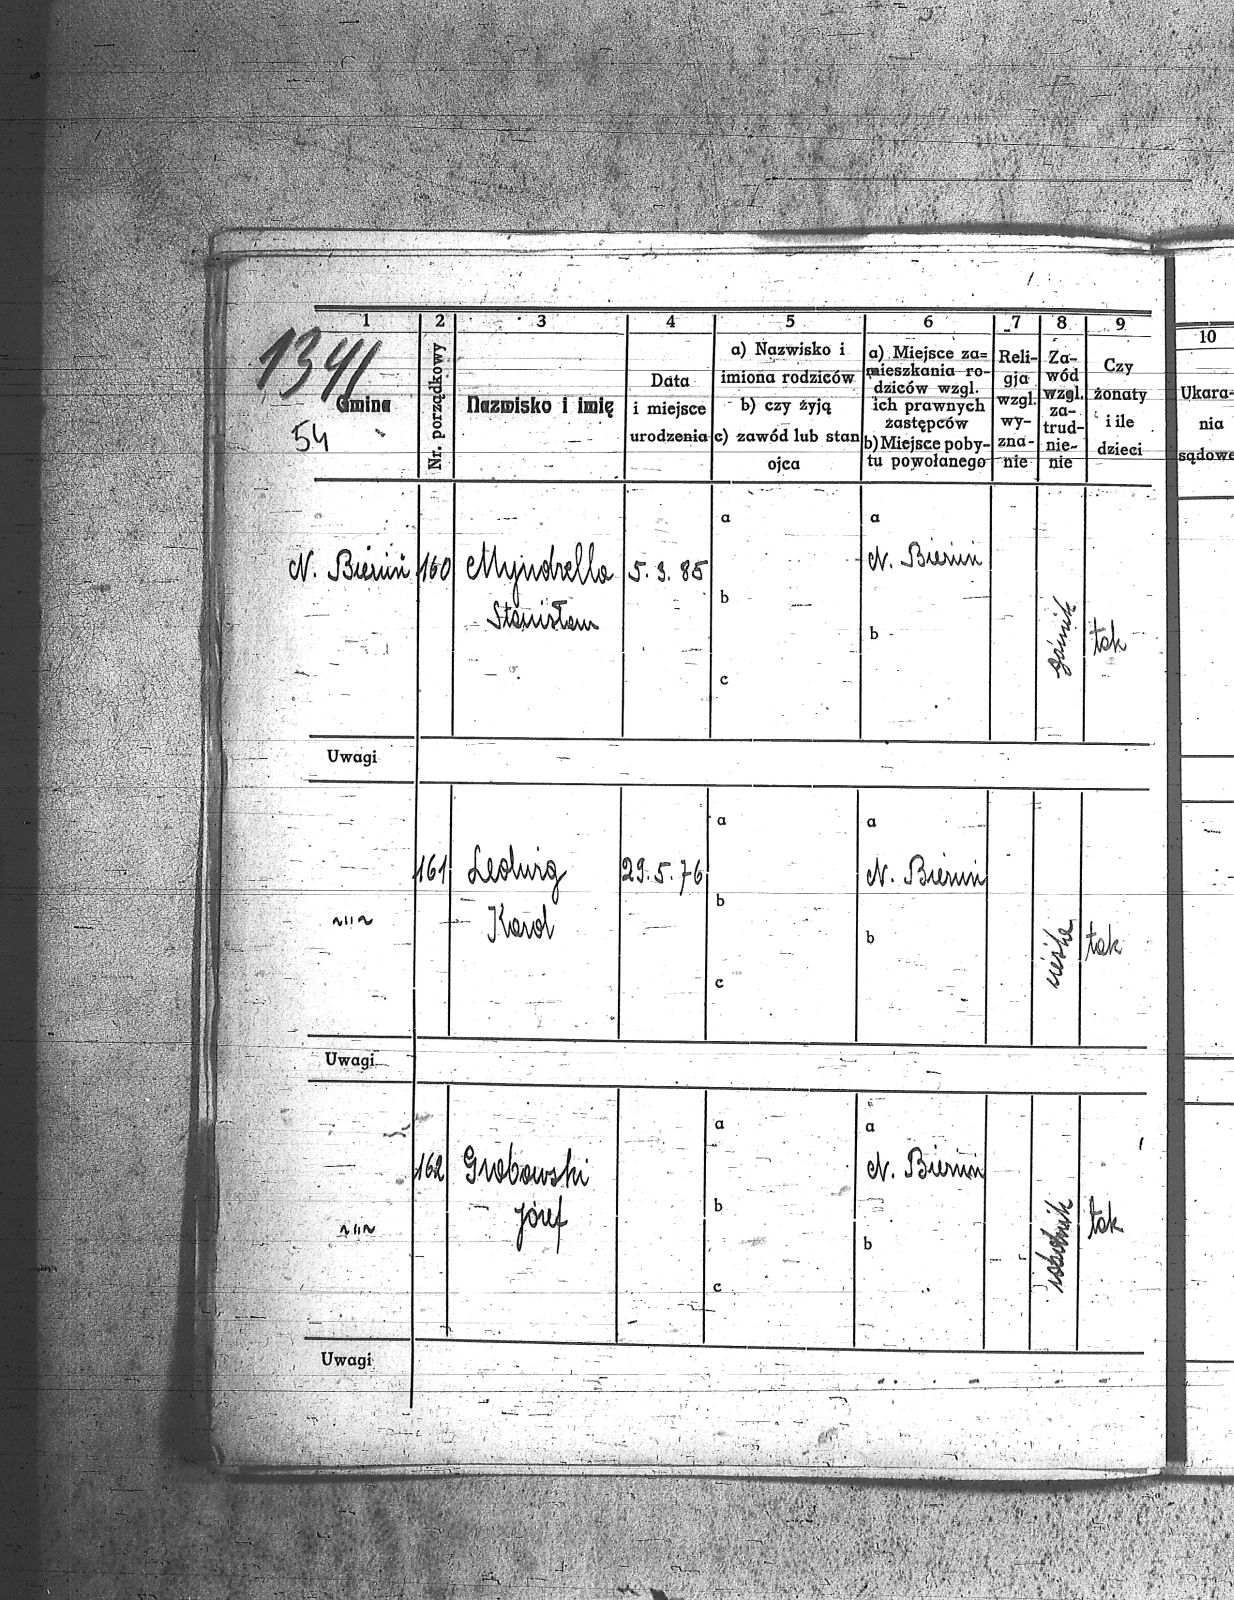 1 2 3 4 5 6 7 8 9
1341
Gmina
54
Nr. porządkowy
Nazwisko i imię
Data
i miejsce
urodzenia
a) Nazwisko i
imiona rodziców
b) czy żyją
c) zawód lub stan
ojca
a) Miejsce za=
mieszkania ro-
dziców wzgl.
ich prawnych
zastępców
b) Miejsce poby-
tu powołanego
Reli-
gja
wzgl.
wy-
zna-
nie
Za-
wód
wzgl.
za-
trud-
nie-
nie
Czy
żonaty
i ile
dzieci
10
Ukara-
nia
sądowe
a a
N. Bieruń 160 Myjndrella 5. 3. 85 N. Bieruń
b
Stanisław
b górnik tak
c
Uwagi
a a
161 Ledwig 29. 5. 76 N. Bieruń
b
~"~ Karol
b cieśla tak
c
Uwagi
a a
162 Grabowski N. Bieruń
b
~"~ Józef robotnik tak
b
c
Uwagi